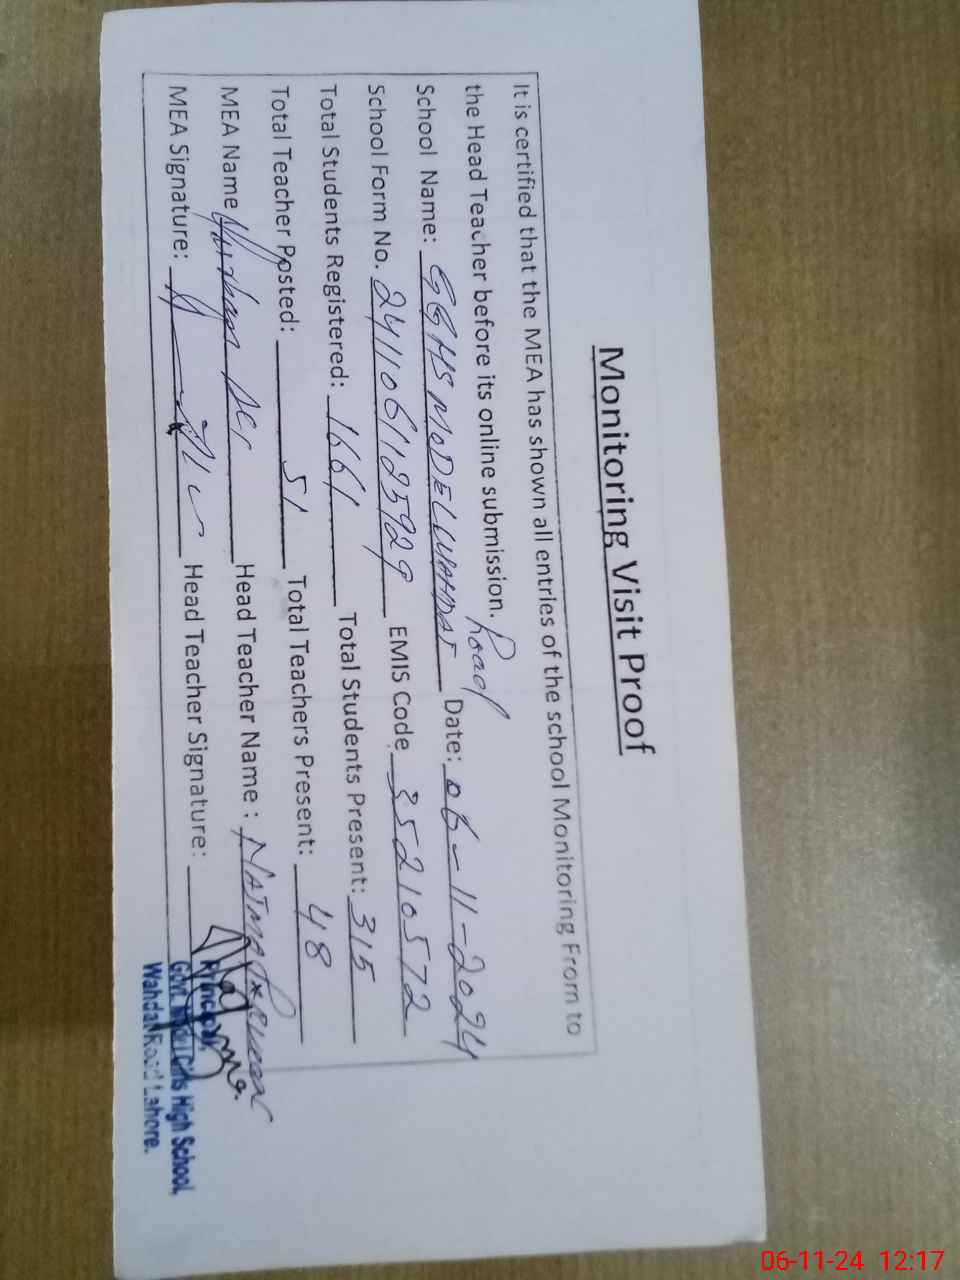 Monitoring Visit Proof
It is certified that the MEA has shown all entries of the school Monitoring From to
the Head Teacher before its online submission. Road
School Name: GGHS MODEL WAHDAT Date: 06-11-2024
School Form No. 2411061125929 EMIS Code 35210572
Total Students Registered: 1661 Total Students Present: 315
Total Teacher Posted: 51 Total Teachers Present: 48
MEA Name Head Teacher Name : NAJMA
MEA Signature: Head Teacher Signature:
Principal
Govt. Model Girls High School,
Wahdat Road Lahore.
06-11-24 12:17